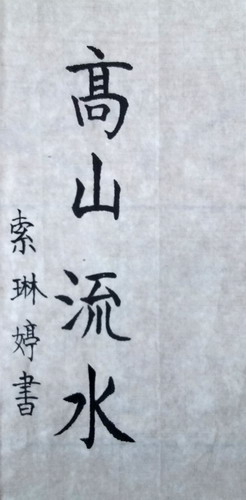 高山流水
索琳婷書